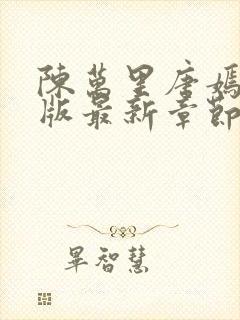 陳萬里唐嫣
版最新章節
畢智慧